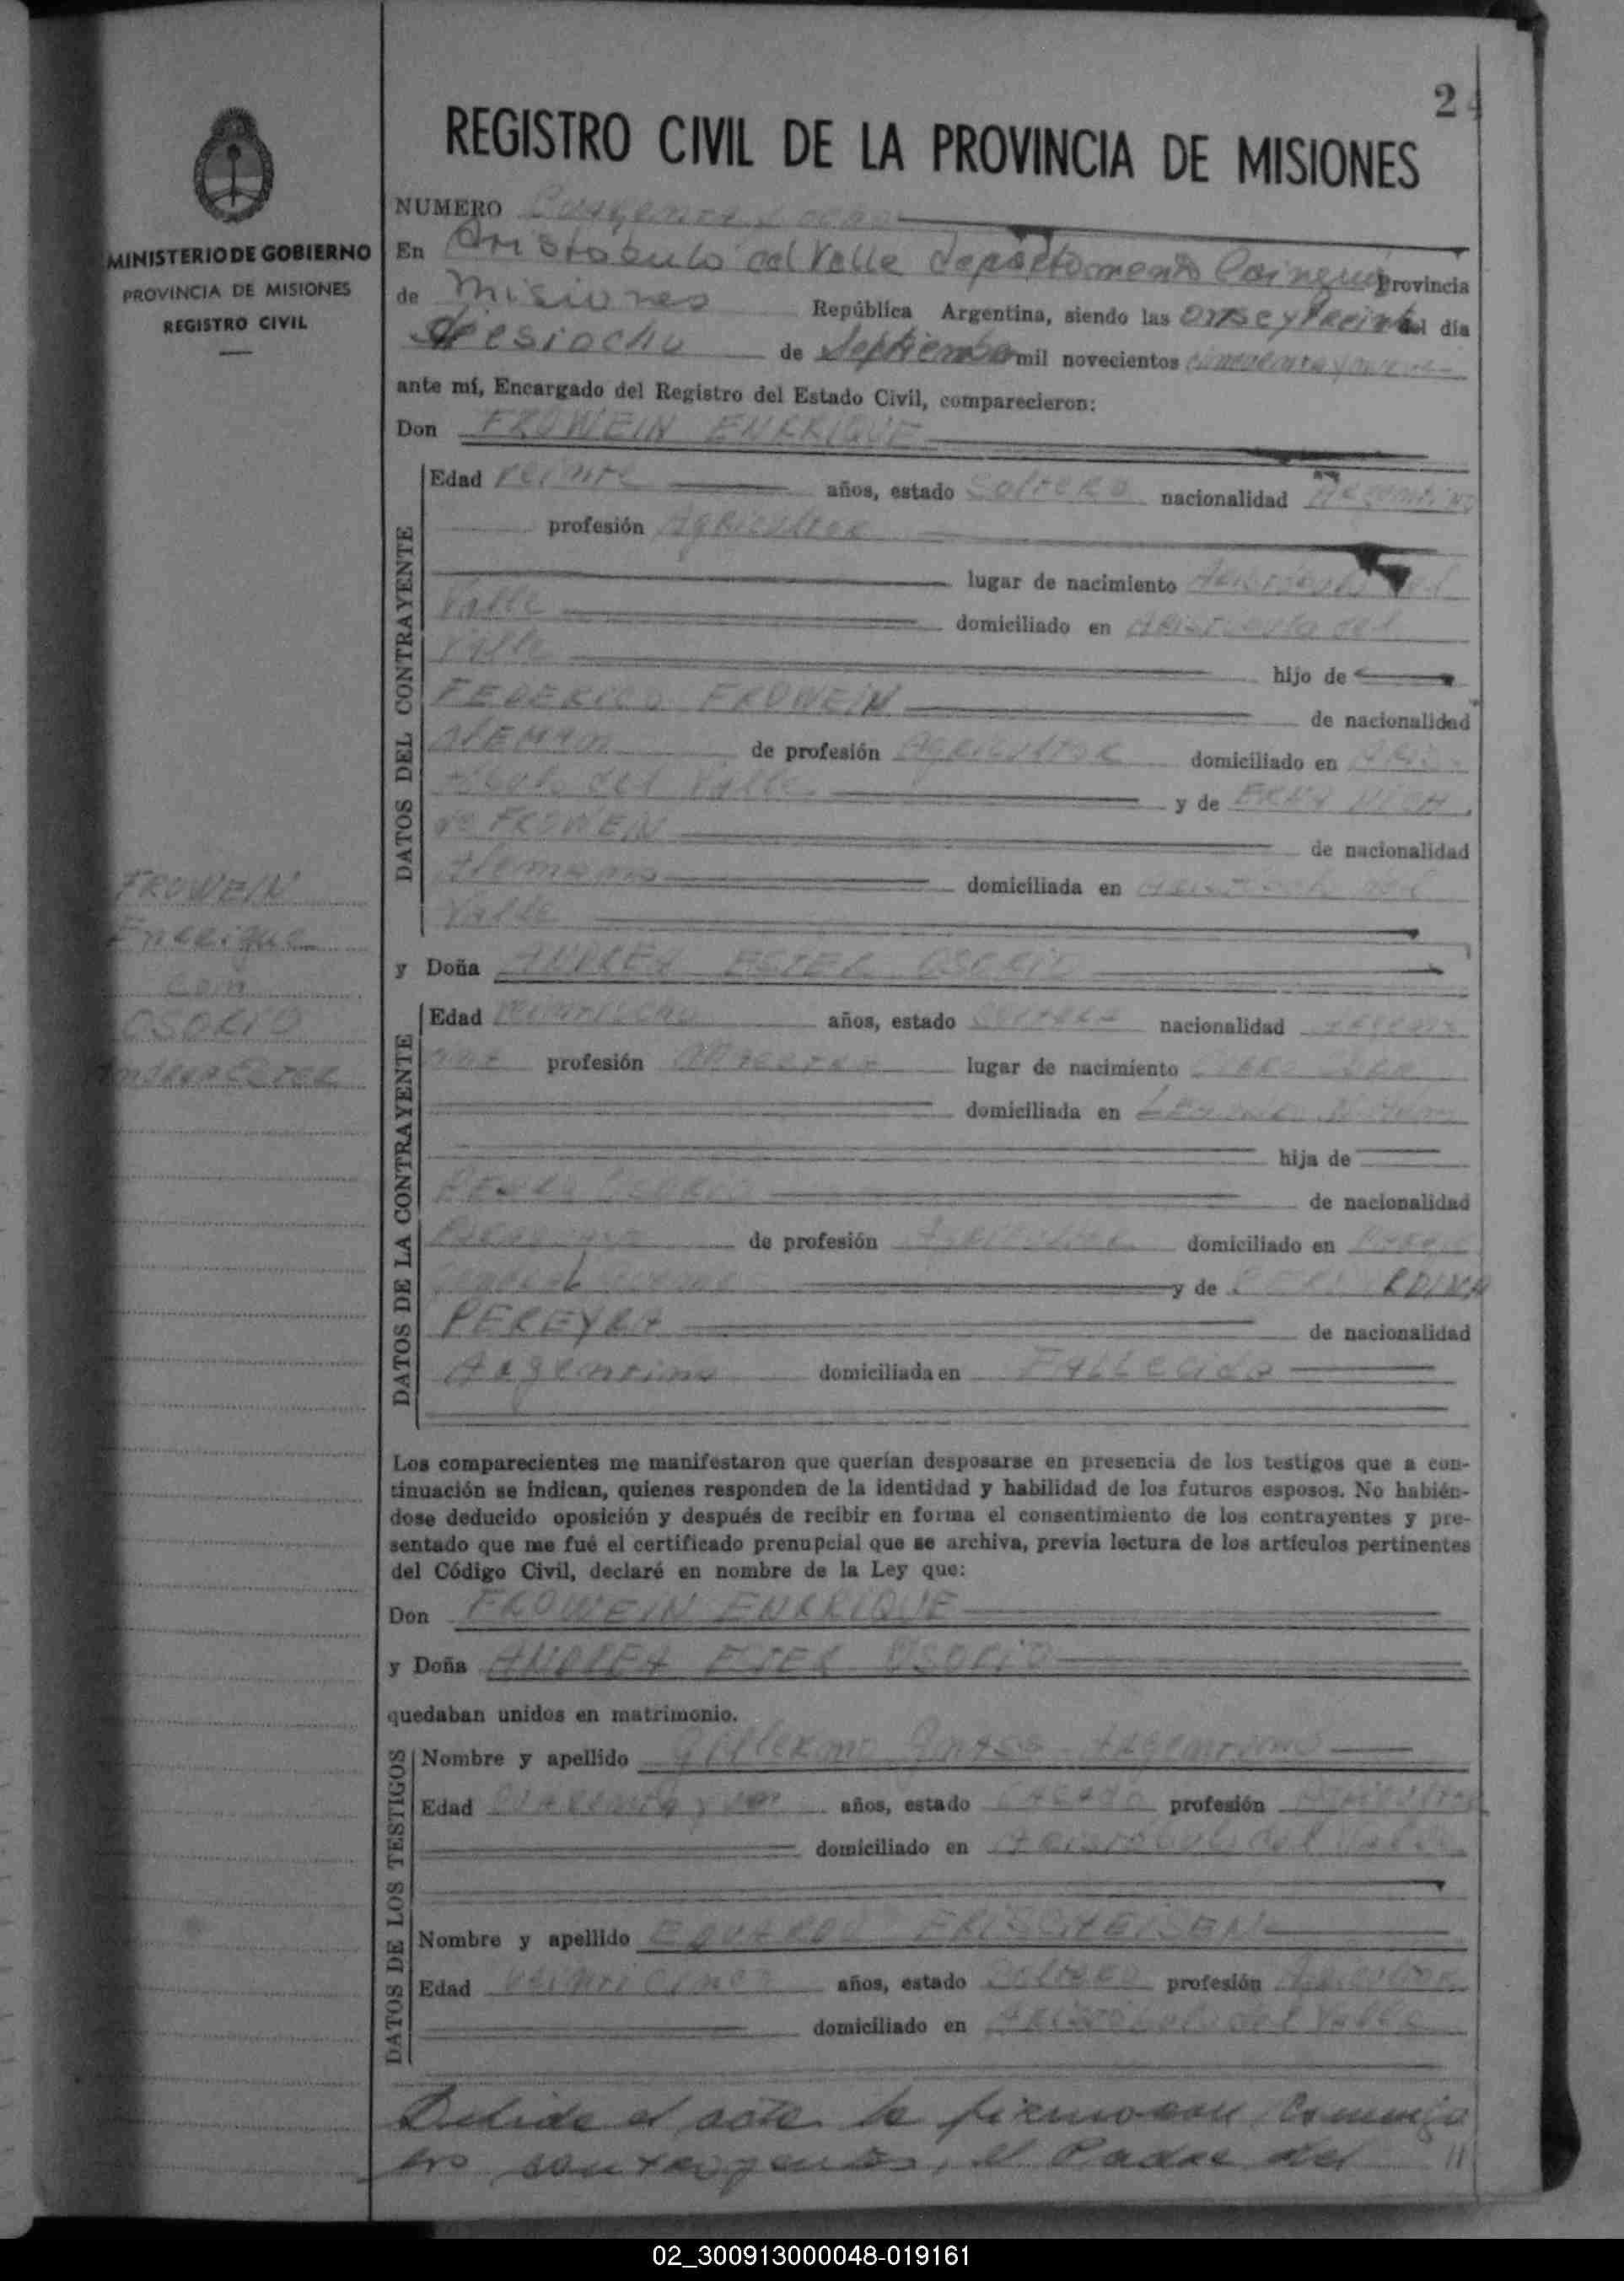 24
REGISTRO CIVIL DE LA PROVINCIA DE MISIONES
MINISTERIO DE GOBIERNO
PROVINCIA DE MISIONES
REGISTRO CIVIL
NUMERO Cuarenta y ocho
En Aristobulo del Valle departamento Cainguas Provincia
de Misiones República Argentina, siendo las onse y treinta del día
diesiocho de Septiembre mil novecientos cincuenta y nueve
ante mí, Encargado del Registro del Estado Civil, comparecieron:
Don FROWEIN ENRRIQUE
DATOS DEL CONTRAYENTE
Edad veinte años, estado Soltero nacionalidad Argentino
profesión Agricultor
lugar de nacimiento Aristobulo del
Valle domiciliado en Aristobulo del
Valle hijo de
FEDERICO FROWEIN de nacionalidad
Aleman de profesión Agricultor domiciliado en Aris-
tobulo del Valle y de ERNA
de FROWEIN de nacionalidad
Alemana domiciliada en Aristobulo del
Valle
FROWEIN
Enrrique
con
OSORIO
Andrea Ester
y Doña ANDREA ESTER OSORIO
DATOS DE LA CONTRAYENTE
Edad veintiocho años, estado soltera nacionalidad Argent
ina profesión Maestra lugar de nacimiento
domiciliada en
hija de
de nacionalidad
de profesión Agricultor domiciliado en
y de
PEREYRA de nacionalidad
Argentina domiciliada en Fallecida
Los comparecientes me manifestaron que querían desposarse en presencia de los testigos que a con-
tinuación se indican, quienes responden de la identidad y habilidad de los futuros esposos. No habién-
dose deducido oposición y después de recibir en forma el consentimiento de los contrayentes y pre-
sentado que me fué el certificado prenupcial que se archiva, previa lectura de los artículos pertinentes
del Código Civil, declaré en nombre de la Ley que:
Don FROWEIN ENRRIQUE
y Doña ANDREA ESTER OSORIO
quedaban unidos en matrimonio.
DATOS DE LOS TESTIGOS
Nombre y apellido Argentino
Edad cuarenta y un años, estado casado profesión Agricultor
domiciliado en Aristobulo del Valle
Nombre y apellido EDUARDO FRISCHEISEN
Edad veinticinco años, estado Soltero profesión Agricultor
domiciliado en Aristobulo del Valle
el acta la firmaron conmigo
los contrayentes, el Padre del //
02_300913000048-019161